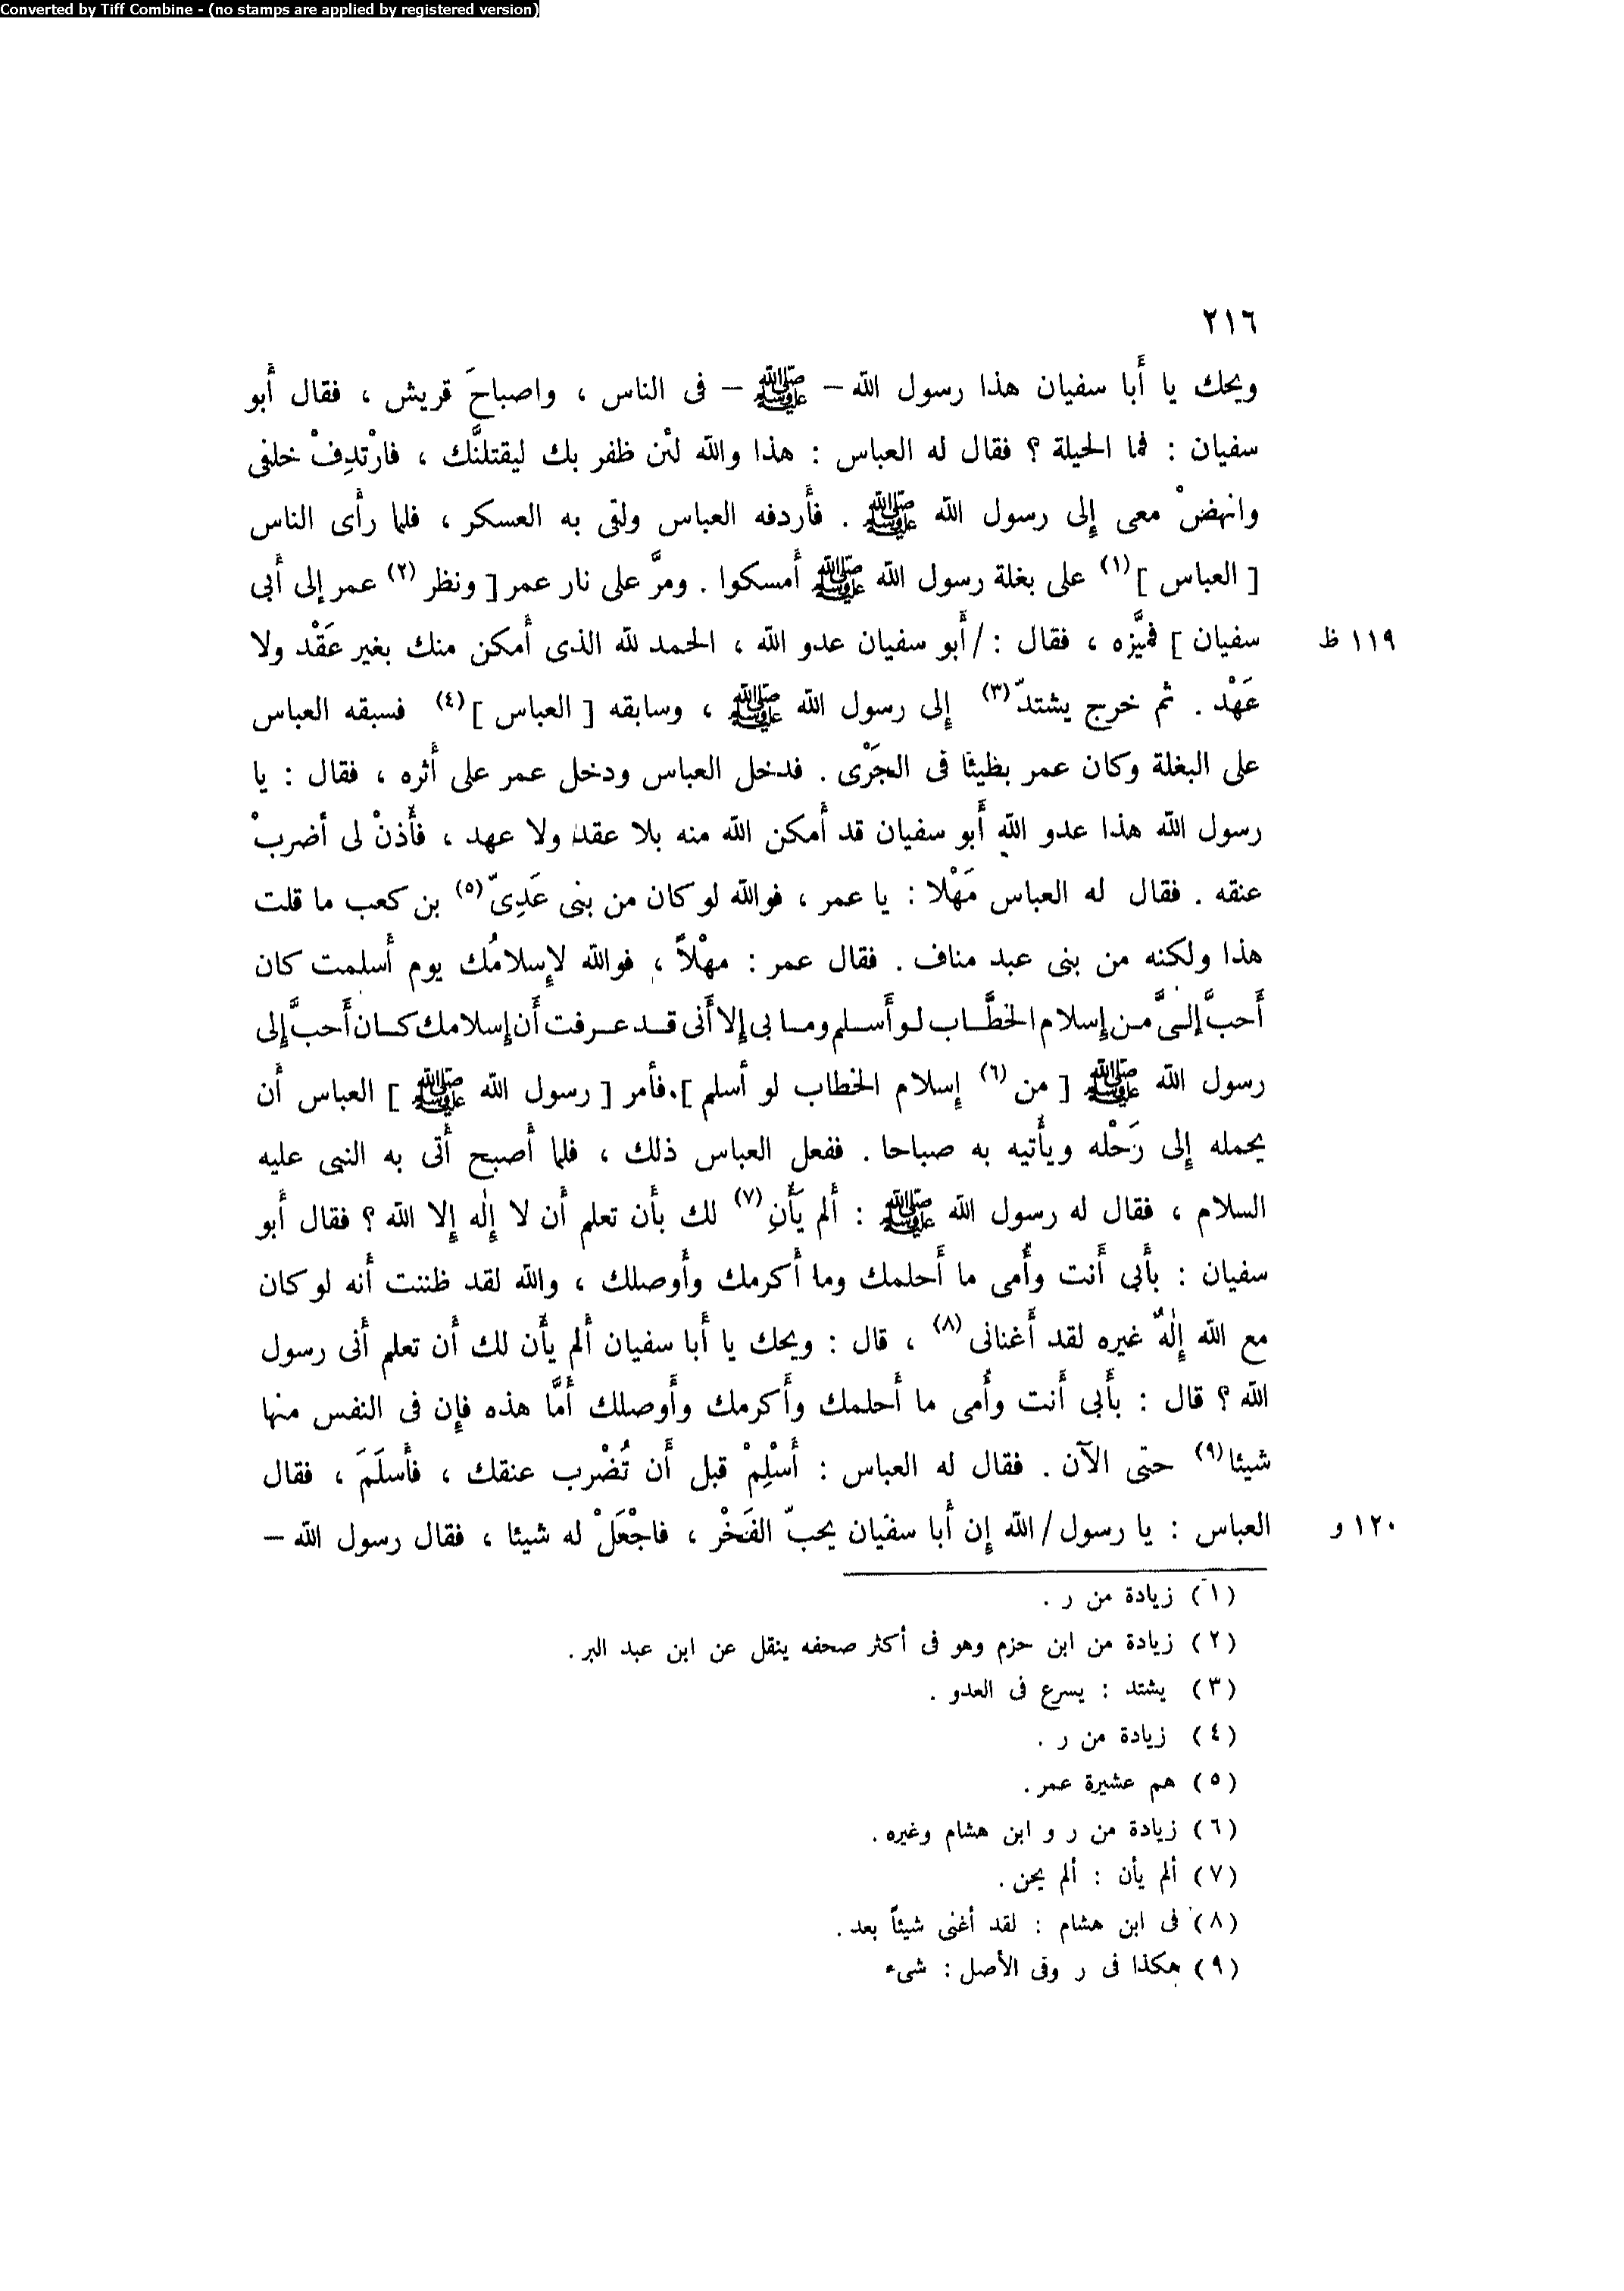 Converted by Tiff Combine - (no stamps are applied by registered version)
٢١٦
ويحك يا أَبا سفيان هذا رسول الله – ﷺ – فى الناس ، واصباحَ قريش ، فقال أَبو
سفيان : فما الحيلة ؟ فقال له العباس : هذا والله لئن ظفر بك ليقتلنَّك ، فارْتدِفْ خلفى
وانهضْ معى إِلى رسول الله ﷺ . فأَردفه العباس ولقى به العسكر ، فلما رأَى الناس
[ العباس ](١) على بغلة رسول الله ﷺ أَمسكوا . ومرَّ على نار عمر [ ونظر (٢) عمر إِلى أَبى
سفيان ] فميَّزه ، فقال : / أَبو سفيان عدو الله ، الحمد لله الذى أَمكن منك بغير عَقْد ولا ١١٩ ظ
عَهْد . ثم خرج يشتدّ(٣) إِلى رسول الله ﷺ ، وسابقه [ العباس ](٤) فسبقه العباس
على البغلة وكان عمر بطيئا فى الجَرْى . فدخل العباس ودخل عمر على أَثره ، فقال : يا
رسول الله هذا عدو الله أَبو سفيان قد أَمكن الله منه بلا عقد ولا عهد ، فأْذنْ لى أضربْ
عنقه . فقال له العباس مَهْلا : يا عمر ، فوالله لو كان من بنى عَدِىّ(٥) بن كعب ما قلت
هذا ولكنه من بنى عبد مناف . فقال عمر : مهْلاً ، فوالله لإِسلامُك يوم أَسلمت كان
أَحبَّ إِلىَّ من إِسلام الخطَّاب لو أَسلم وما بى إِلا أَنى قد عرفت أَن إِسلامك كان أَحبَّ إِلى
رسول الله ﷺ [ من (٦) إِسلام الخطاب لو أسلم ].فأمر [ رسول الله ﷺ ] العباس أَن
يحمله إِلى رَحْله ويأْتيه به صباحا . ففعل العباس ذلك ، فلما أَصبح أَتى به النبى عليه
السلام ، فقال له رسول الله ﷺ : أَلم يَأْنِ(٧) لك بأَن تعلم أَن لا إِلٰه إِلا الله ؟ فقال أَبو
سفيان : بأَبى أَنت وأُمى ما أَحلمك وما أَكرمك وأَوصلك ، والله لقد ظننت أَنه لو كان
مع الله إِلٰهٌ غيره لقد أَغنانى (٨) ، قال : ويحك يا أَبا سفيان أَلم يأْن لك أَن تعلم أَنى رسول
الله ؟ قال : بأَبى أَنت وأُمى ما أَحلمك وأَكرمك وأَوصلك أَمَّا هذه فإِن فى النفس منها
شيئا(٩) حتى الآن . فقال له العباس : أَسْلِمْ قبل أَن تُضْرب عنقك ، فأَسلَمَ ، فقال
العباس : يا رسول / الله إِن أَبا سفيان يحبّ الفَخْر ، فاجْعَلْ له شيئا ، فقال رسول الله – ١٢٠ و
(١) زيادة من ر .
(٢) زيادة من ابن حزم وهو فى أكثر صحفه ينقل عن ابن عبد البر .
(٣) يشتد : يسرع فى العدو .
(٤) زيادة من ر .
(٥) هم عشيرة عمر .
(٦) زيادة من ر و ابن هشام وغيره .
(٧) ألم يأن : ألم يحن .
(٨) فى ابن هشام : لقد أغنى شيئاً بعد .
(٩) هكذا فى ر وفى الأصل : شىء